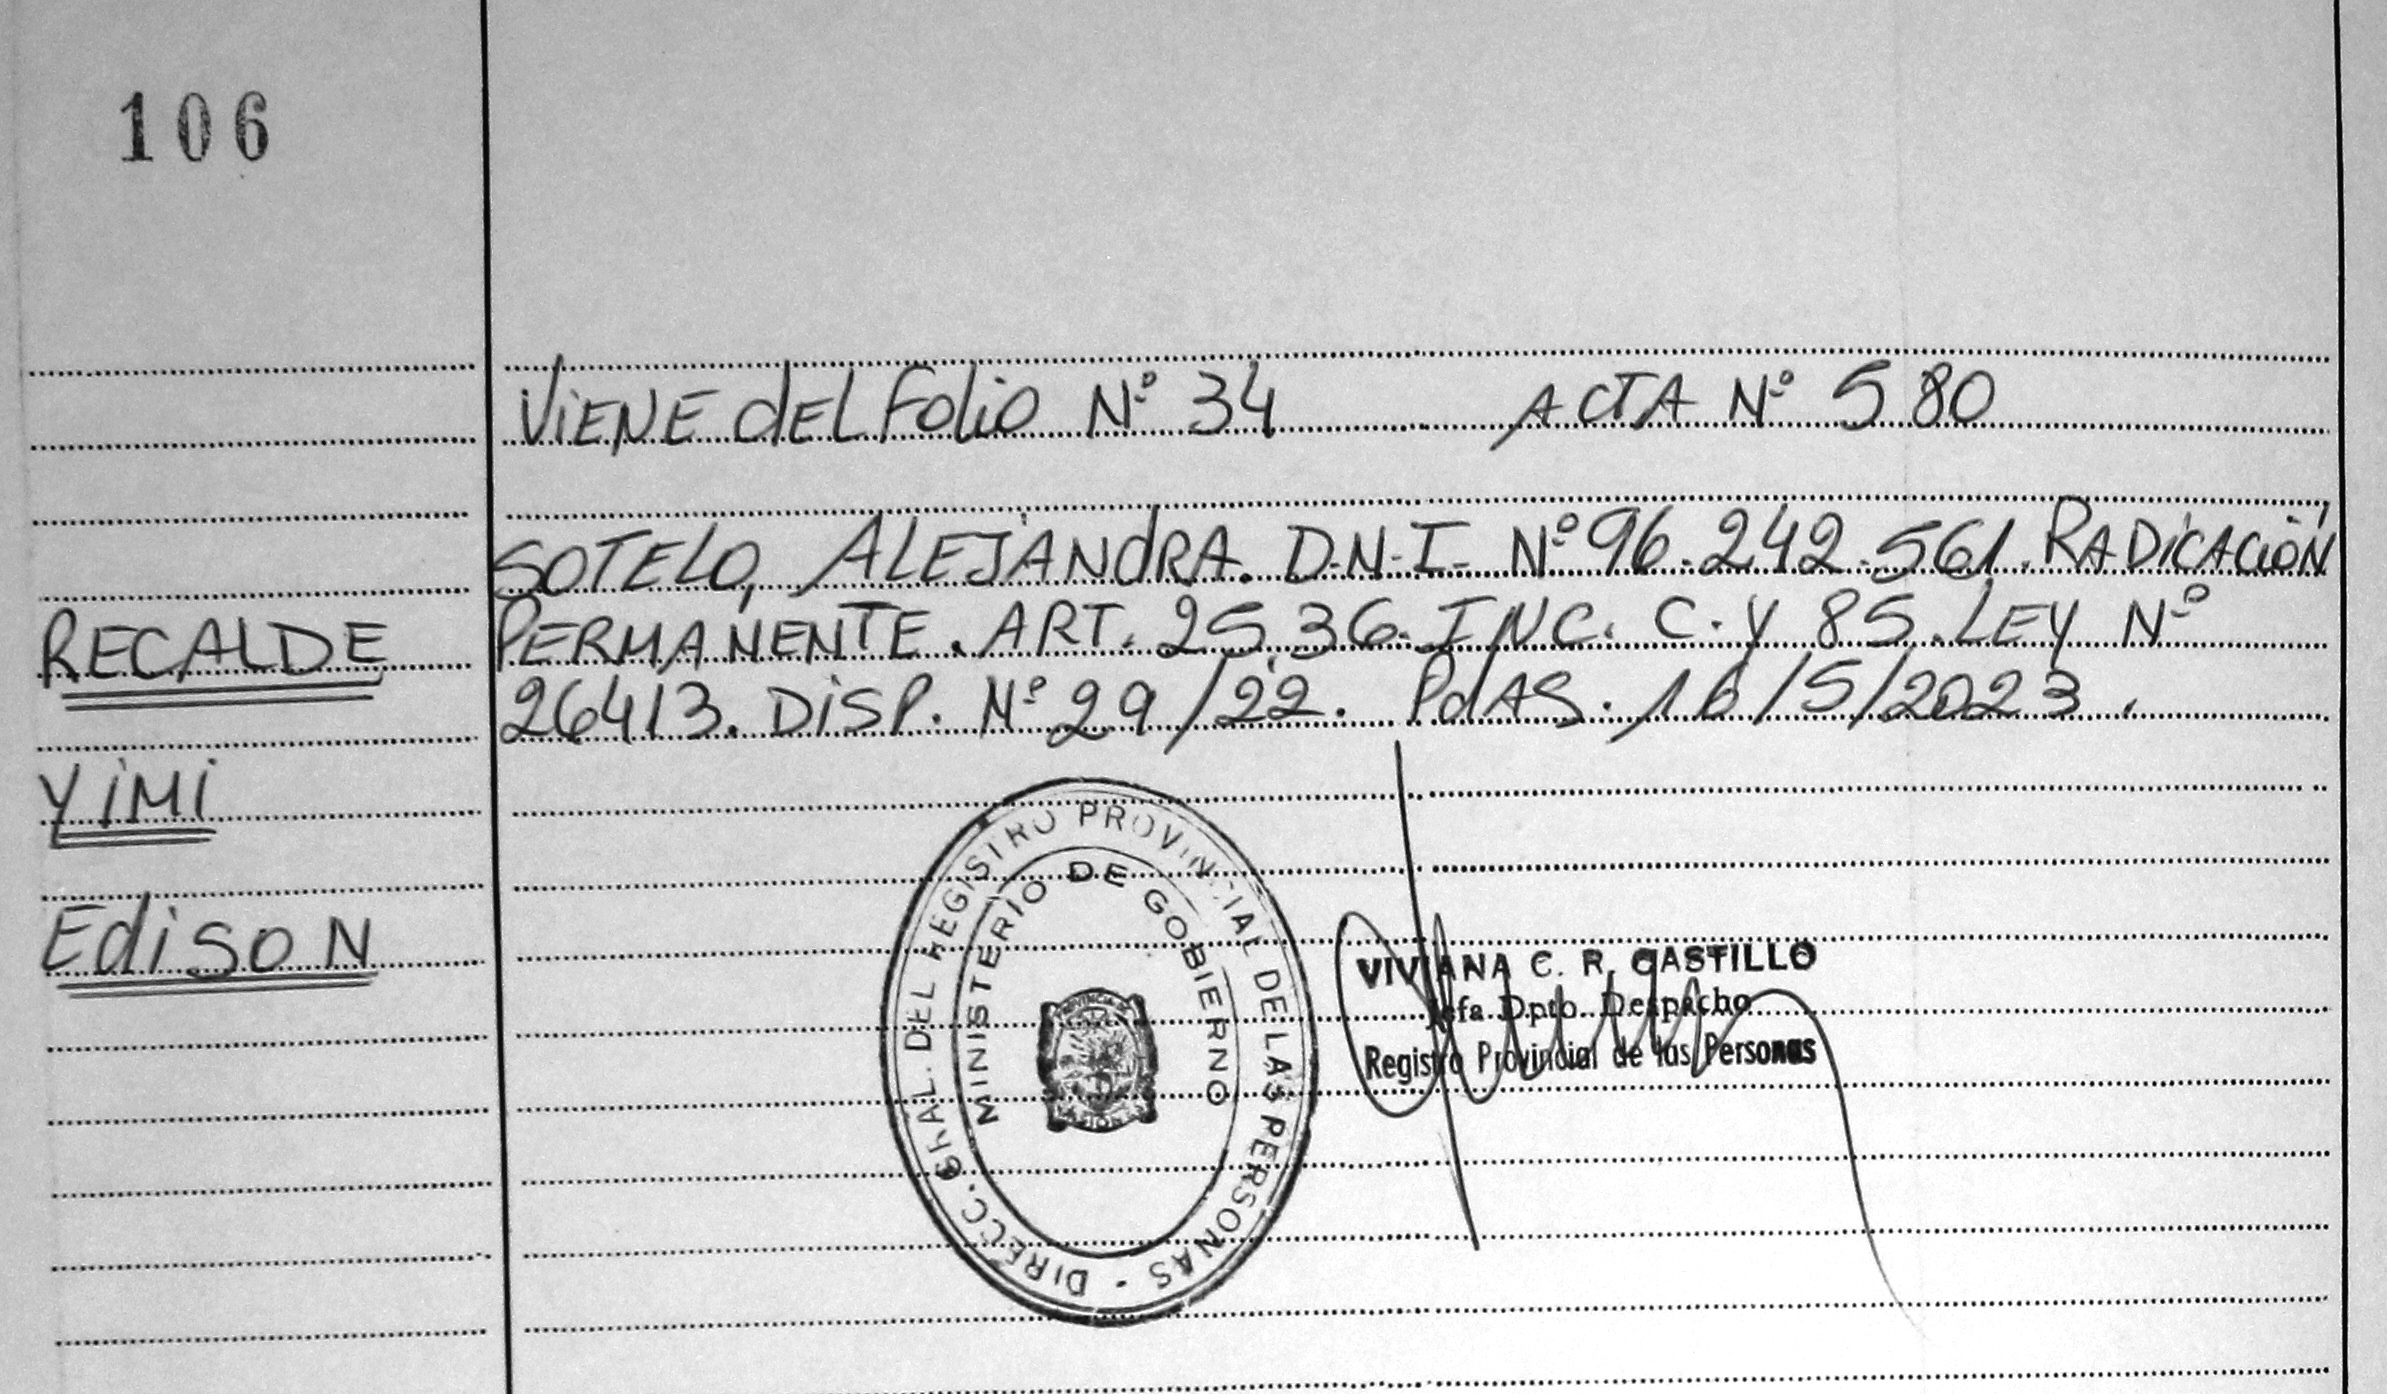 106
ViENE dEL Folio Nº 34 ACTA Nº 580
SOTELO, ALEJANdRA. D.N.I. Nº 96.242.561. RADiCACiÓN
RECALDE
PERMANENTE. ART. 25,36. INC. C. Y 85. LEY Nº
26413. DiSP. Nº 29/22. PdAS. 16/5/2023.
YiMi
EdisoN
DIRECC. GRAL. DEL REGISTRO PROVINCIAL DE LAS PERSONAS -
MINISTERIO DE GOBIERNO
VIVIANA C. R. CASTILLO
Jefa Dpto. Despacho
Registro Provincial de las Personas